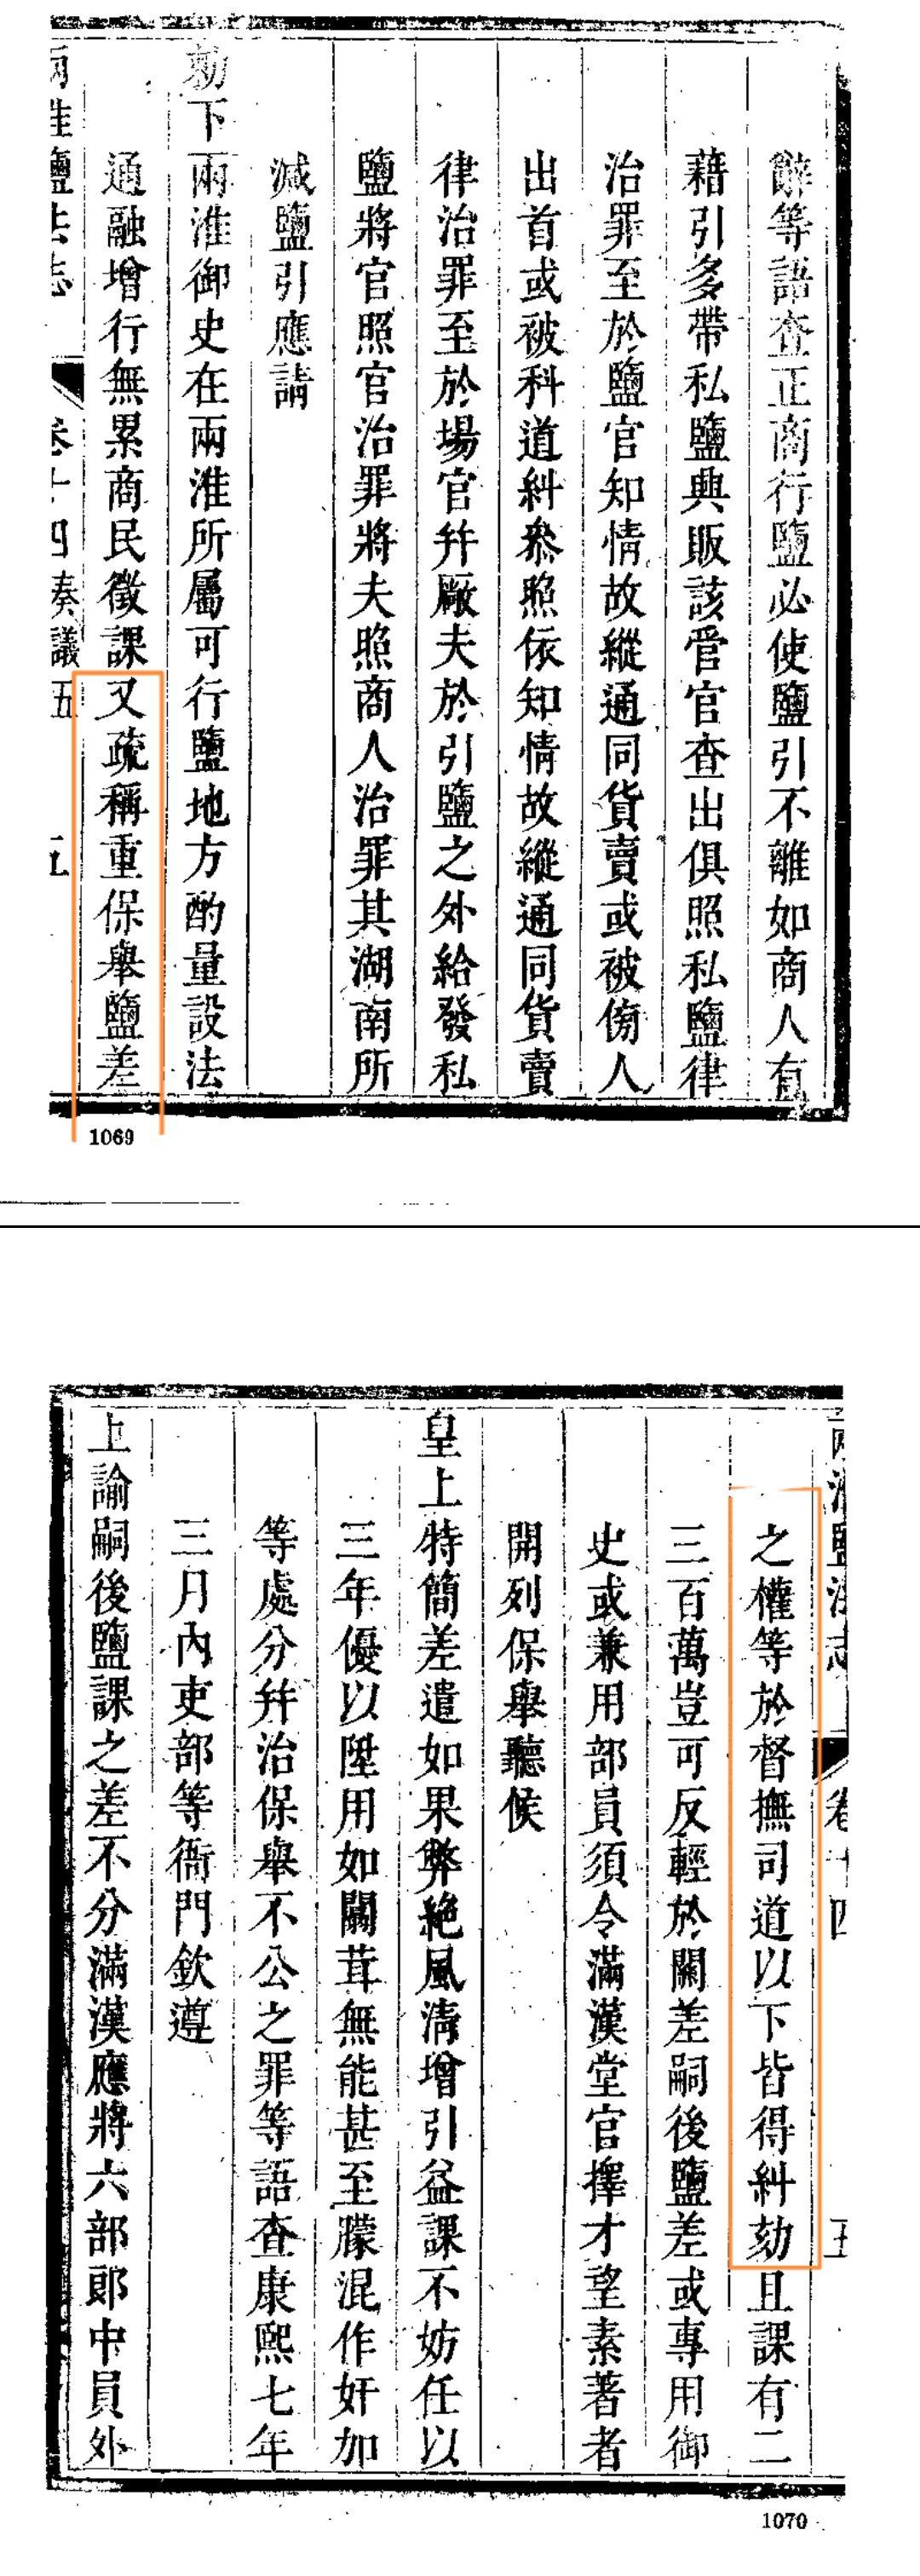 辭等語查正商行鹽必使鹽引不離如商人有
藉引多帶私鹽興販該管官查出俱照私鹽律
治罪至於鹽官知情故縱通同貨賣或被傍人
出首或被科道糾叅照依知情故縱通同貨賣
律治罪至於場官幷廠夫於引鹽之外給發私
鹽將官照官治罪將夫照商人治罪其湖南所
減鹽引應請
勅下兩淮御史在兩淮所屬可行鹽地方酌量設法
通融增行無累商民徵課又疏稱重保舉鹽差
兩淮鹽法志 卷十四 奏議五 五
1069
兩淮鹽法志 卷十四 五
之權等於督撫司道以下皆得糾劾且課有二
三百萬豈可反輕於關差嗣後鹽差或專用御
史或兼用部員須令滿漢堂官擇才望素著者
開列保舉聽候
皇上特簡差遣如果弊絶風淸增引益課不妨任以
三年優以陞用如闒茸無能甚至朦混作奸加
等處分幷治保舉不公之罪等語查康熙七年
三月內吏部等衙門欽遵
上諭嗣後鹽課之差不分滿漢應將六部郎中員外
1070